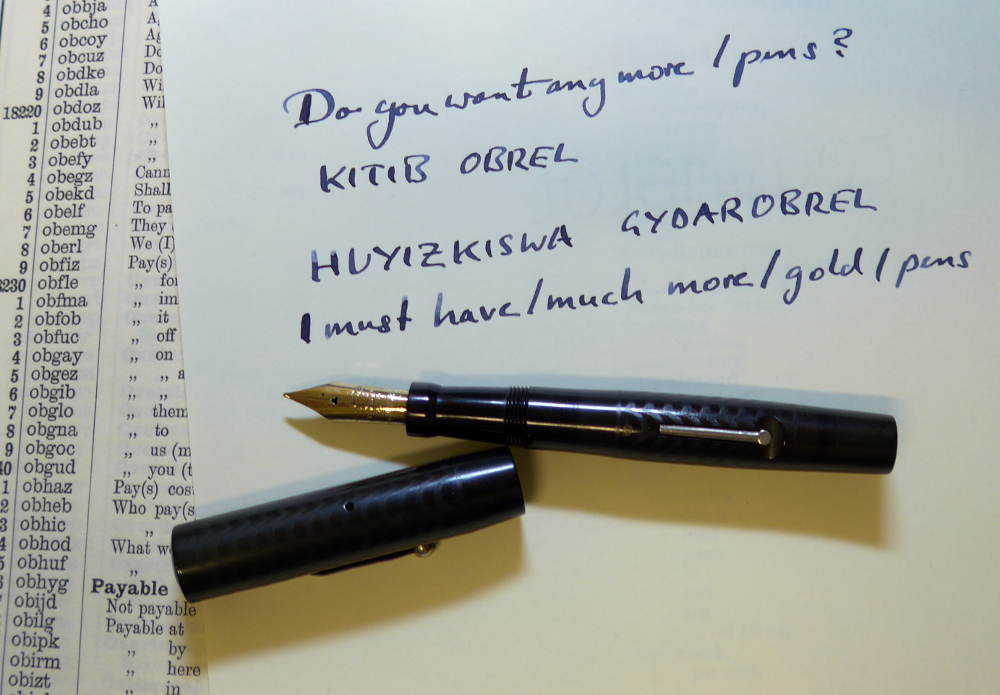 4 obbja A
5 obcho A
6 obcoy Ag
7 obcuz Do
8 obdke Do
9 obdla Wi
18220 obdoz Wil
1 obdub „
2 obebt „
3 obefy „
4 obegz Cann
5 obekd Shall
6 obelf To pa
7 obemg They
8 oberl We (I)
9 obfiz Pay(s)
8230 obfle „ for
1 obfma „ im
2 obfob „ it
3 obfuc „ off
4 obgay „ on
5 obgez „ „ a
6 obgib „ „
7 obglo „ them
8 obgna „ to
9 obgoc „ us (m
40 obgud „ you (t
1 obhaz Pay(s) cos
2 obheb Who pay(s
3 obhic „
4 obhod What w
5 obhuf „
6 obhyg Payable
obijd Not payable
obilg Payable at
obipk „ by
obirm „ here
obizt „ in
Do you want any more / pens?
KITIB OBREL
HUYIZKISWA GYDAROBREL
I must have/much more/gold/pens